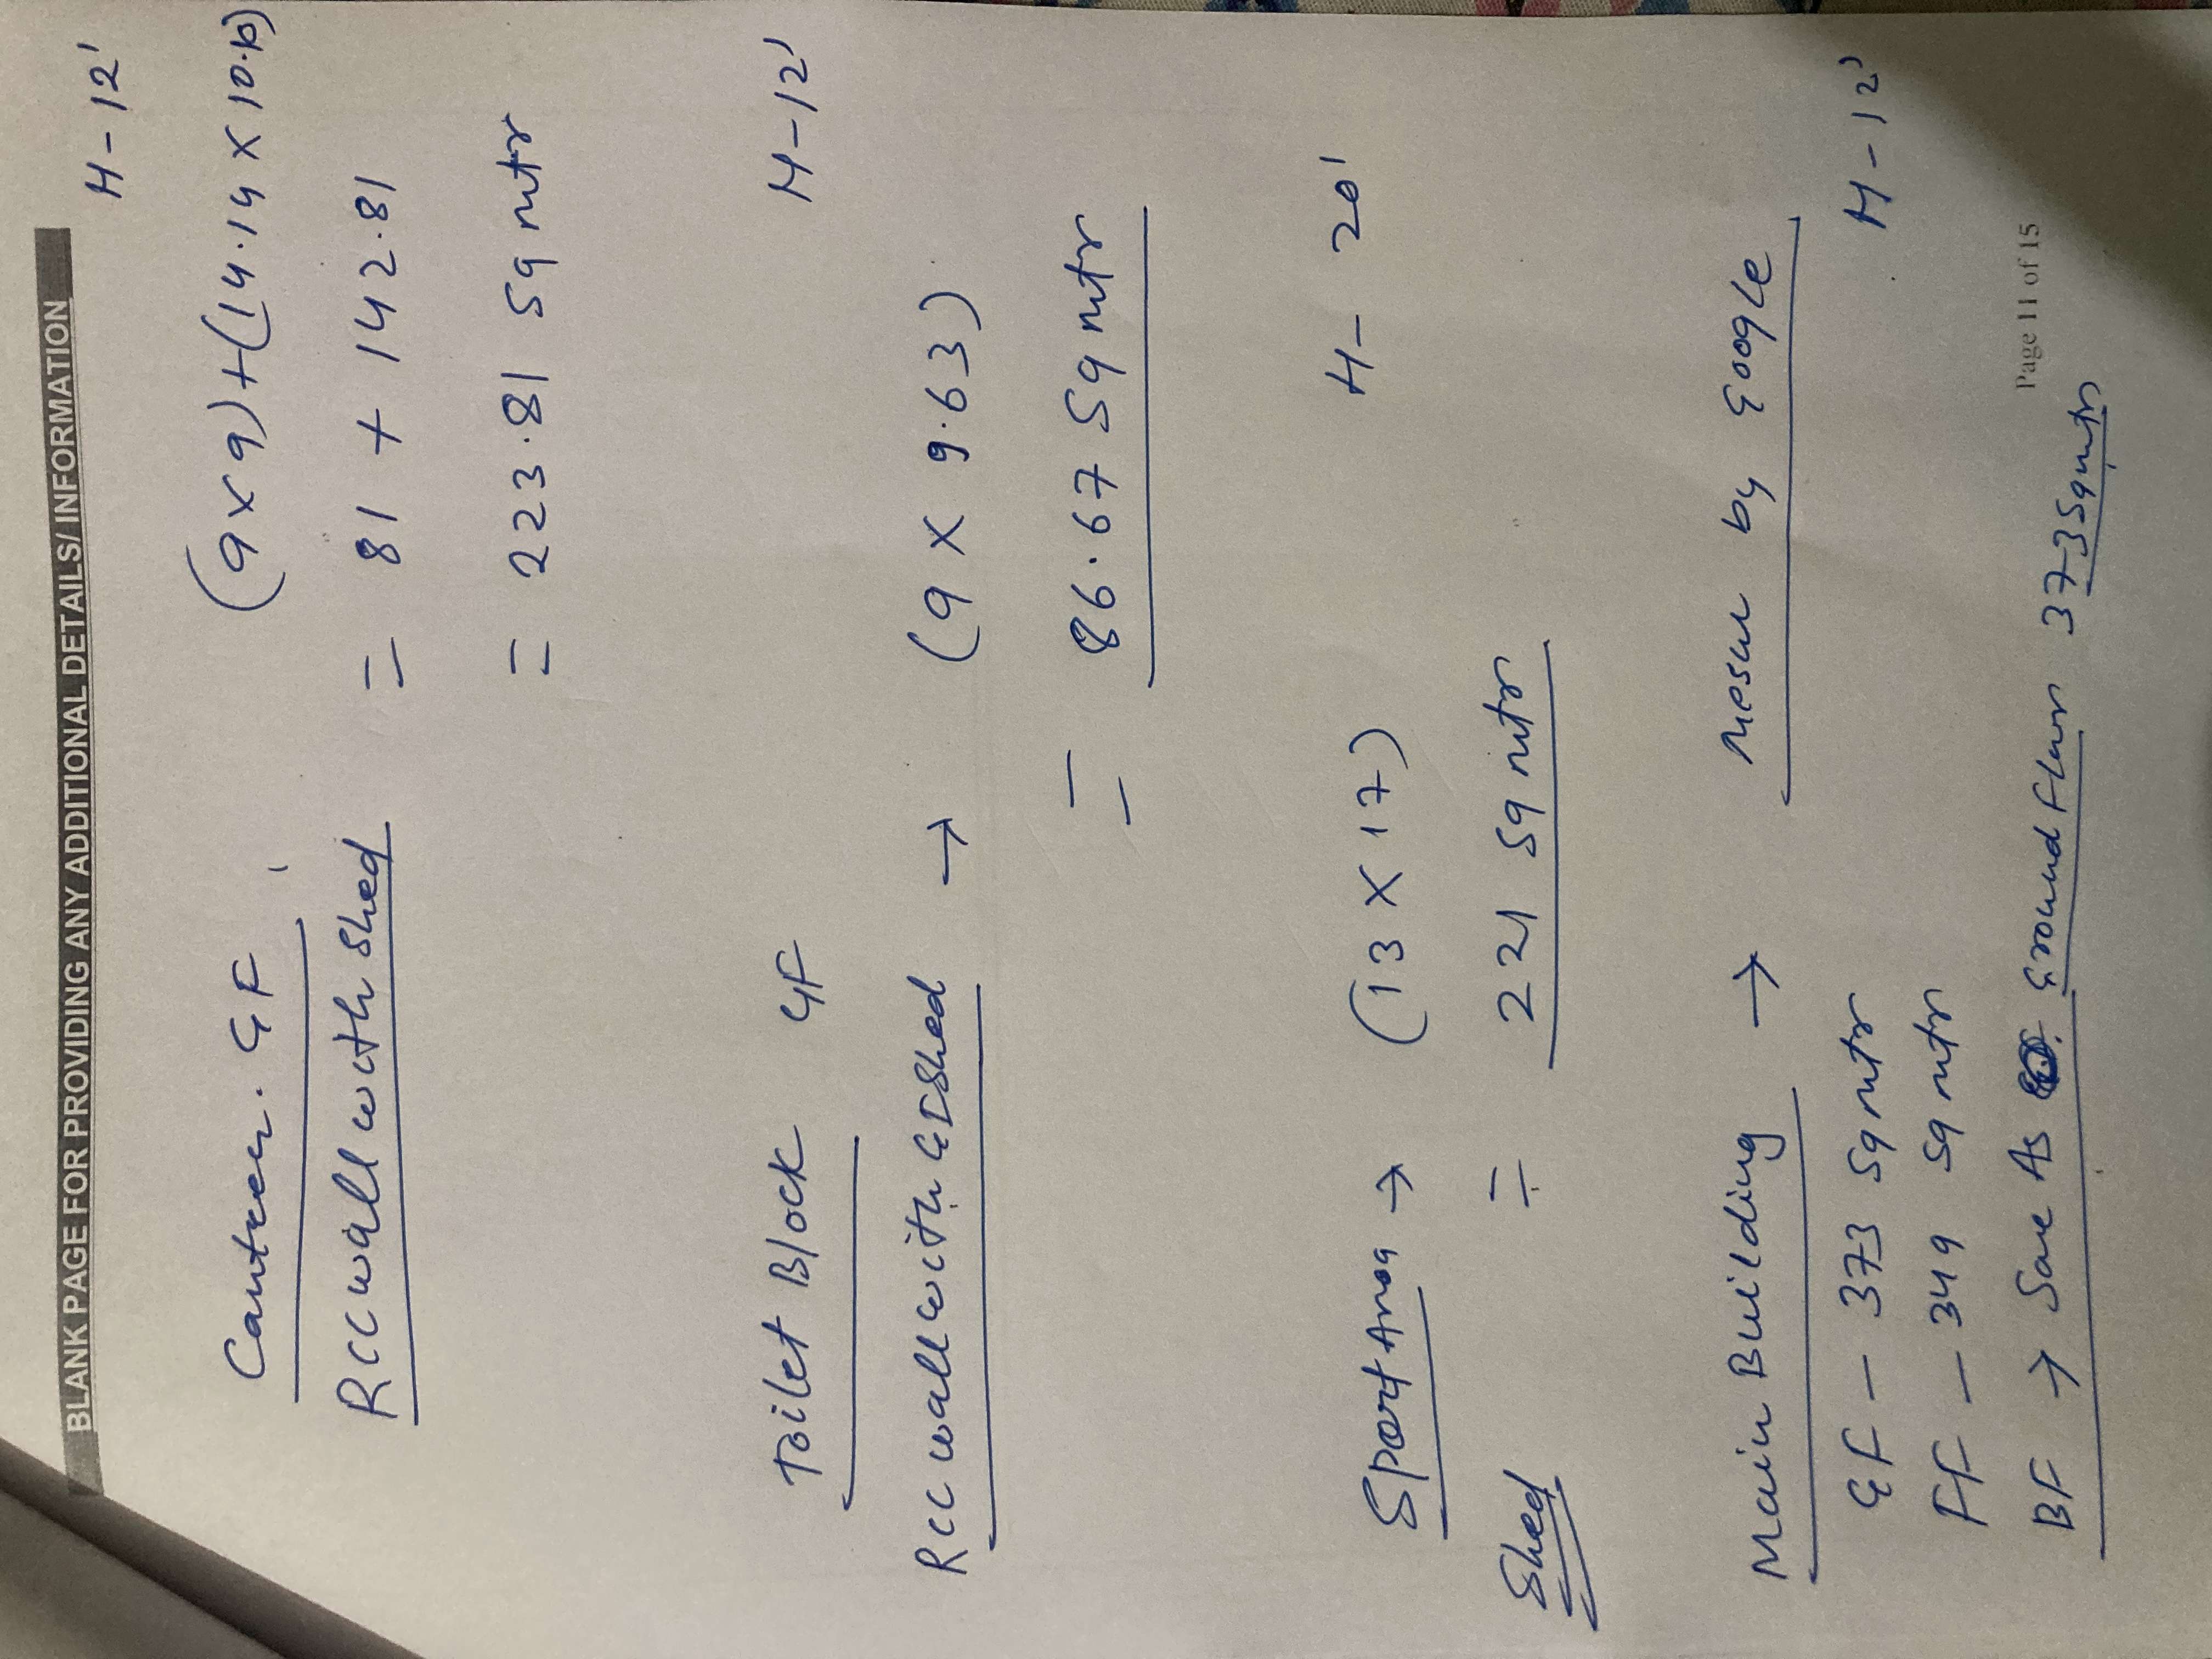 BLANK PAGE FOR PROVIDING ANY ADDITIONAL DETAILS/ INFORMATION
H-12'
Canteen. GF (9x9)+(14.14 x 10.10)
RCC wall with shed = 81 + 142.81
= 223.81 Sq mtr
Toilet Block GF H-12'
RCC wall with GI Shed → (9 x 9.63)
= 86.67 Sq mtr
Sport Area → (13 x 17) H- 20'
Shed = 221 Sq mtr
Main Building → Mesur by Google
GF - 373 Sq mtr H-12'
FF - 349 Sq mtr
BF → Same As Ground Floor 373 Sq mtr
Page 11 of 15